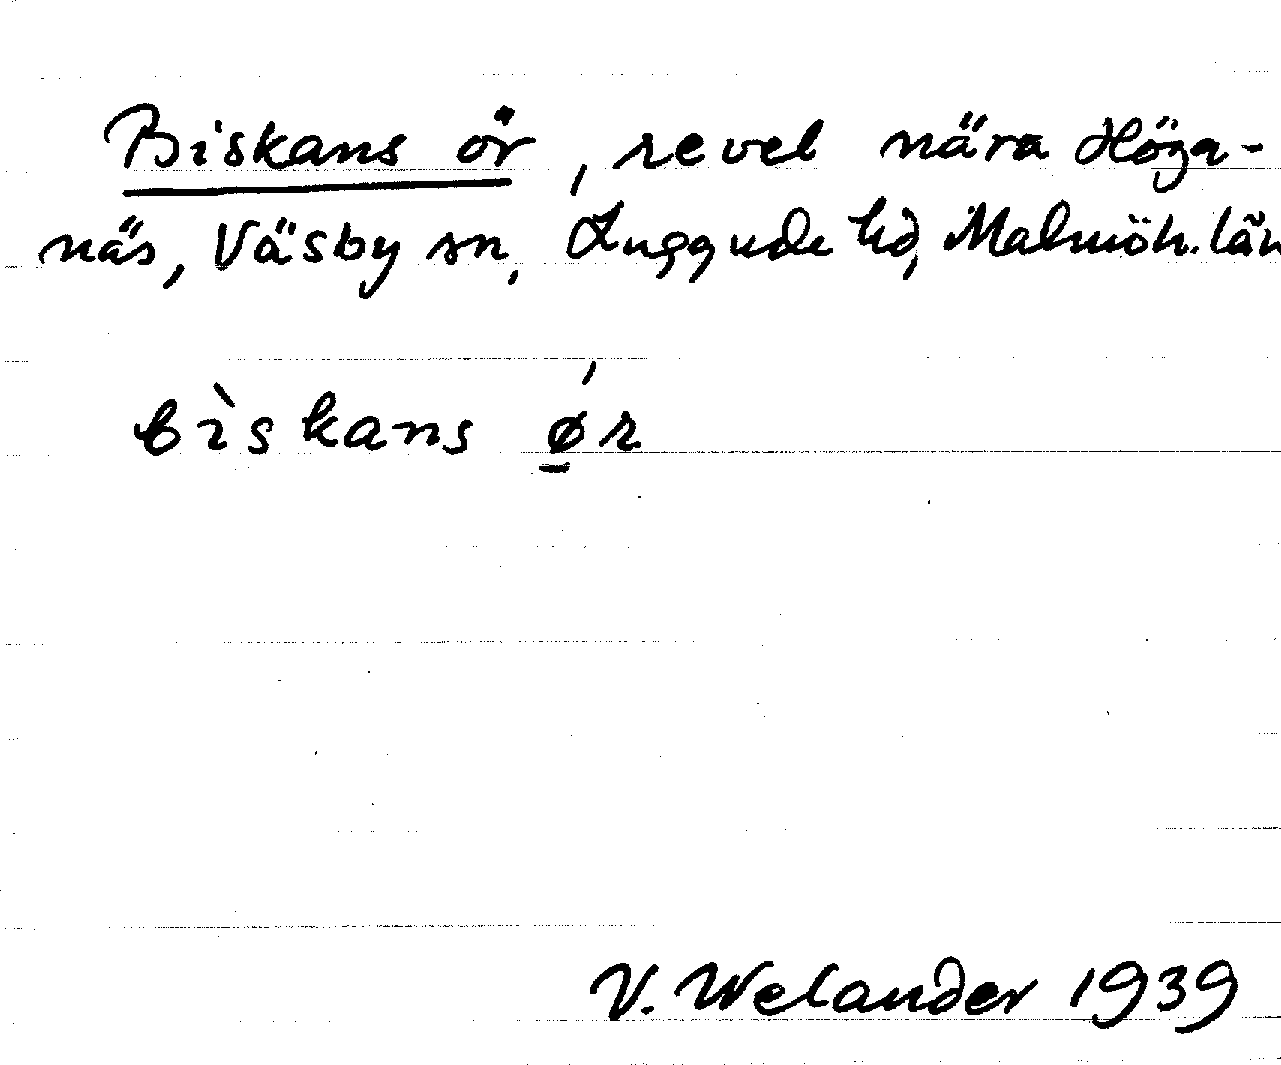 Biskans ör, revel nära Höga-
näs, Väsby sn, Luggude hd, Malmöh. län
bìskans ǿ̲r
V. Welander 1939